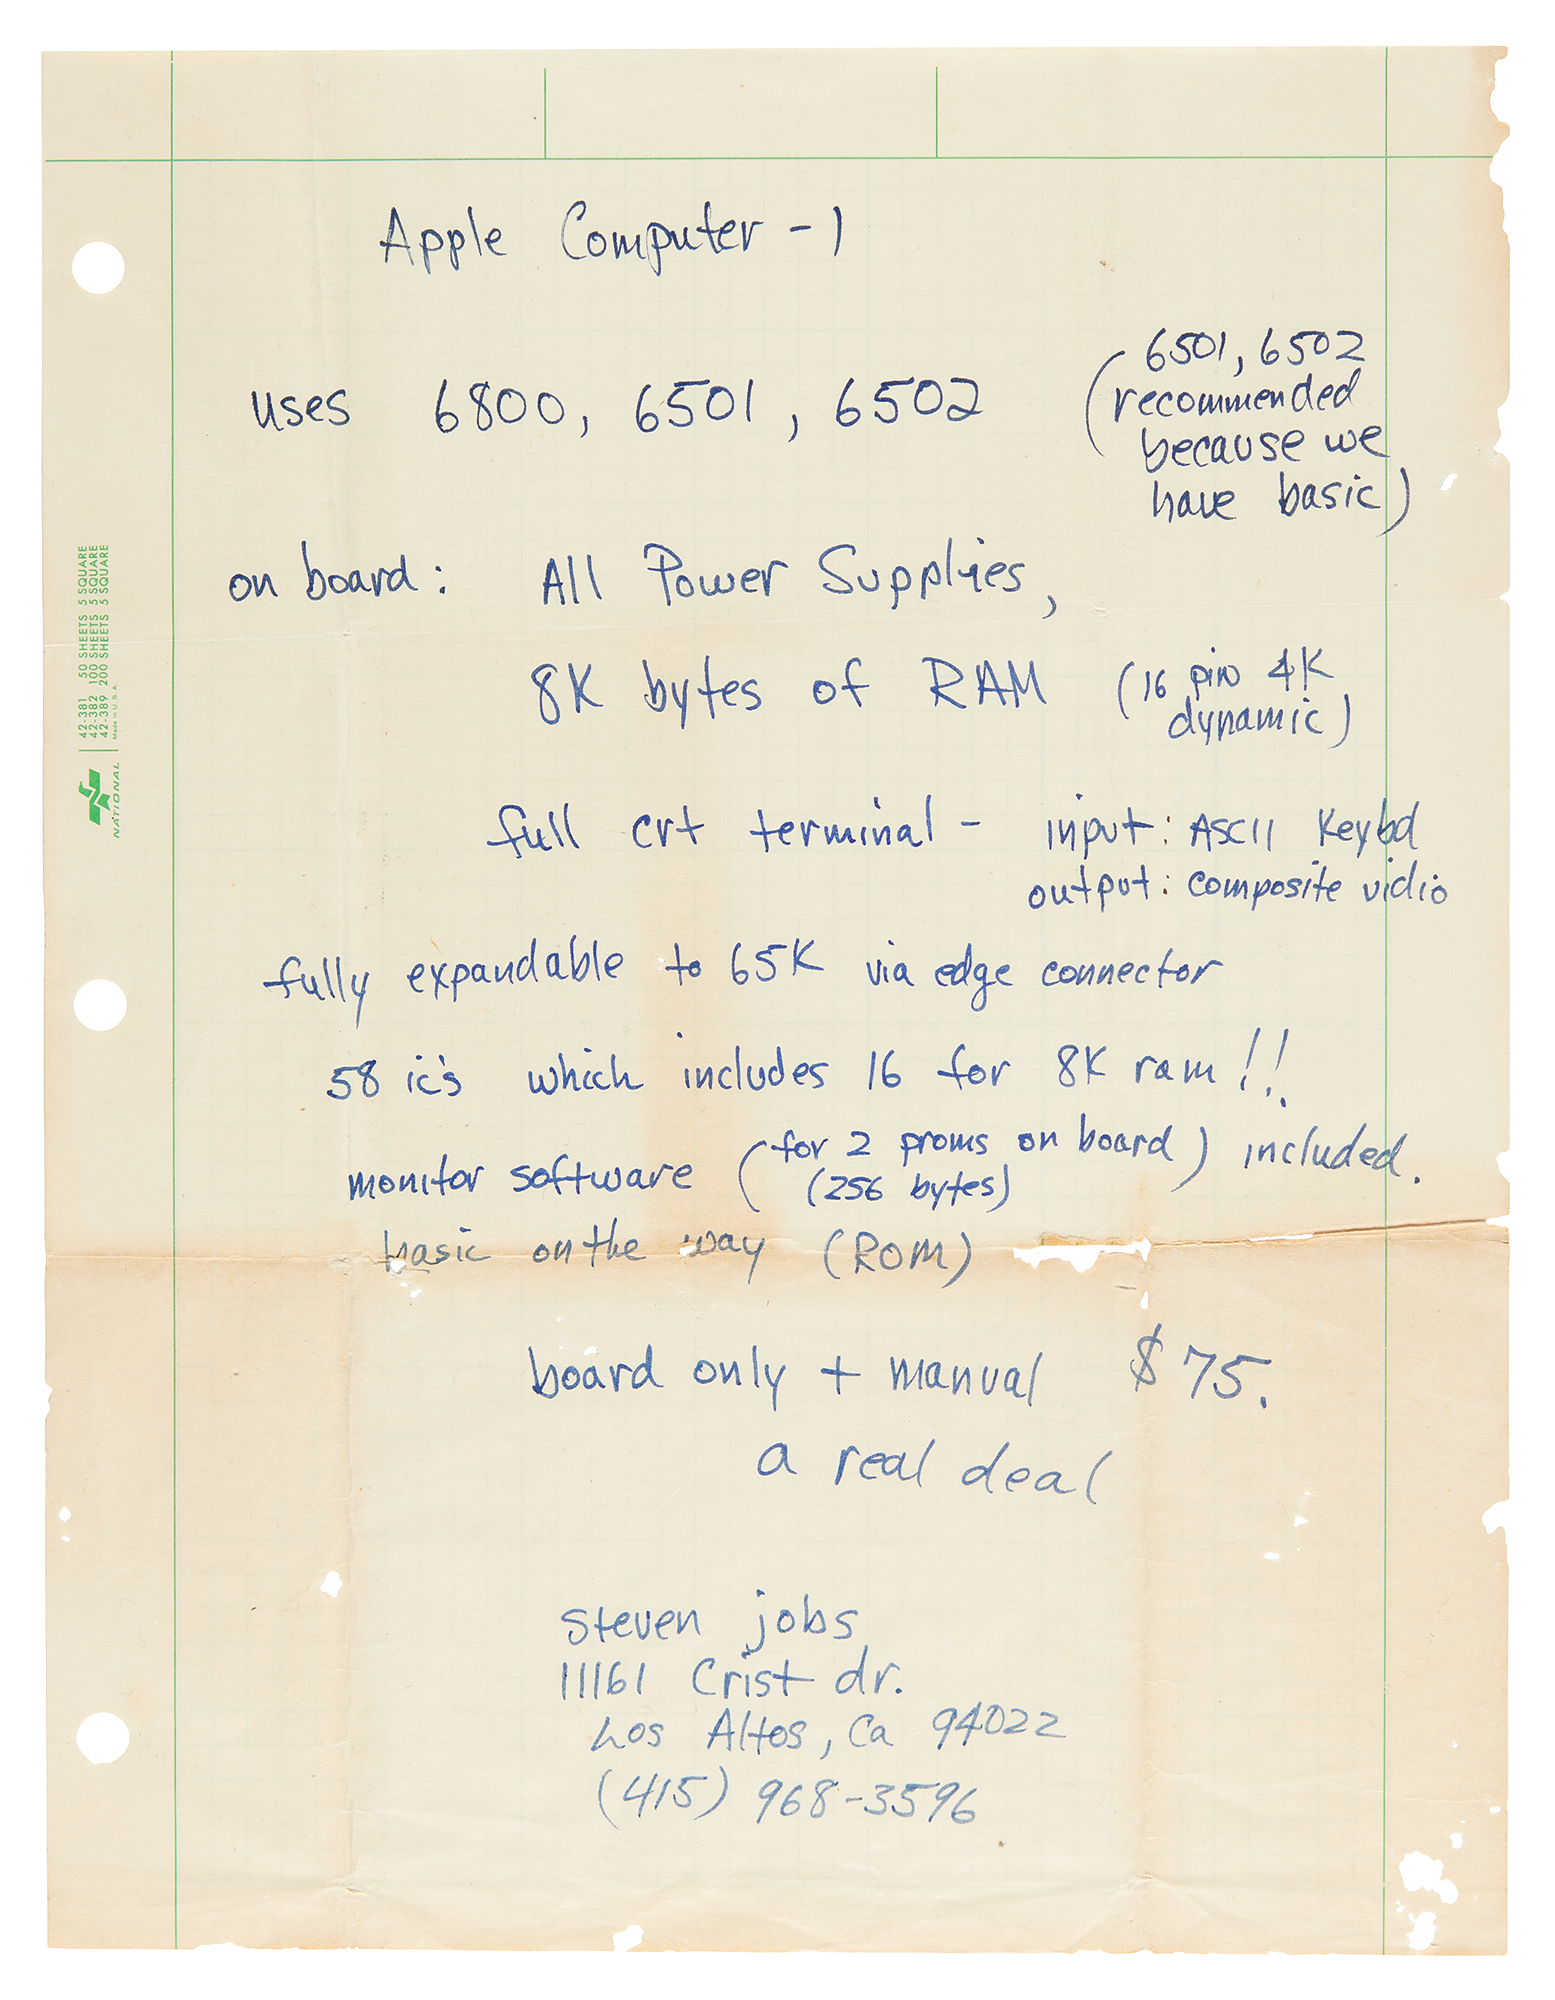 Apple Computer - 1
uses 6800, 6501, 6502 (6501, 6502
recommended
because we
have basic)
on board: All Power Supplies,
8K bytes of RAM (16 pin 4K
dynamic)
full crt terminal - input: ASCII Keybd
output: composite vidio
fully expandable to 65K via edge connector
58 ic's which includes 16 for 8K ram!!
monitor software (for 2 proms on board) included.
(256 bytes)
basic on the way (ROM)
board only + manual $75.
a real deal
steven jobs
11161 Crist dr.
Los Altos, Ca 94022
(415) 968-3596
42-381 50 SHEETS 5 SQUARE
42-382 100 SHEETS 5 SQUARE
42-389 200 SHEETS 5 SQUARE
Made in U.S.A.
NATIONAL